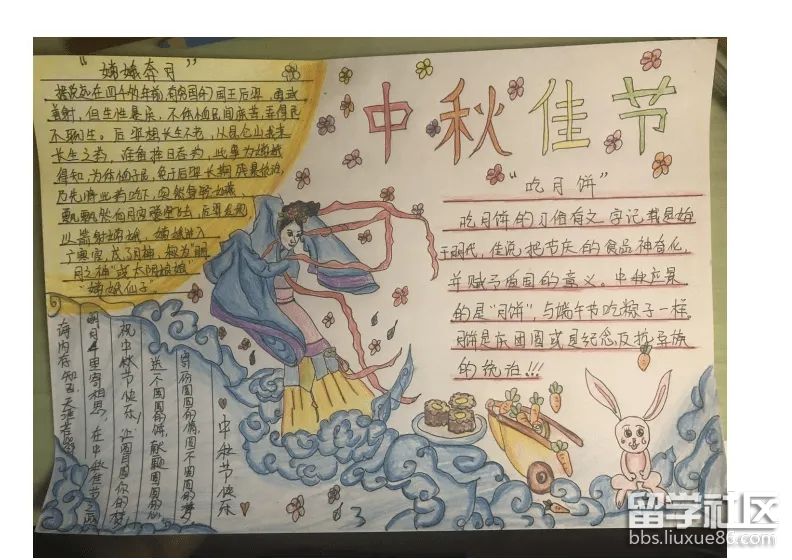 中秋佳节
"嫦娥奔月"
据说远在四千的年前,有穷国国王后羿,勇武
善射,但生性暴戾,不体恤民间疾苦,弄得民
不聊生。后羿想长生不老,从昆仑山
长生之药,准备择日吞药,此事为嫦娥
得知,为体恤子民,免于后羿长期残暴统治,
乃先将此药吃下,突然身轻如燕,
飘飘然向月宫飞去,后羿
以箭射嫦娥,嫦娥进入
广寒宫,成了月神,称为"明
月之神"或太阴娘娘"
"嫦娥仙子"
"吃月饼"
吃月饼的习俗有文字记载是始
于明代,传说把节庆的食品神奇化,
并赋予爱国的意义。中秋应景
的是"月饼",与端午节吃粽子一样。
月饼是庆团圆或是纪念反抗异族
的统治!!!
中秋节快乐
寄份圆圆的情,圆不圆圆的梦
送个圆圆的饼,献颗圆圆的心
祝中秋节快乐,让圆月圆你的梦
明月千里寄相思,在中秋佳节之际
海内存知己,天涯若比邻
留学社区
bbs.liuxue86.com